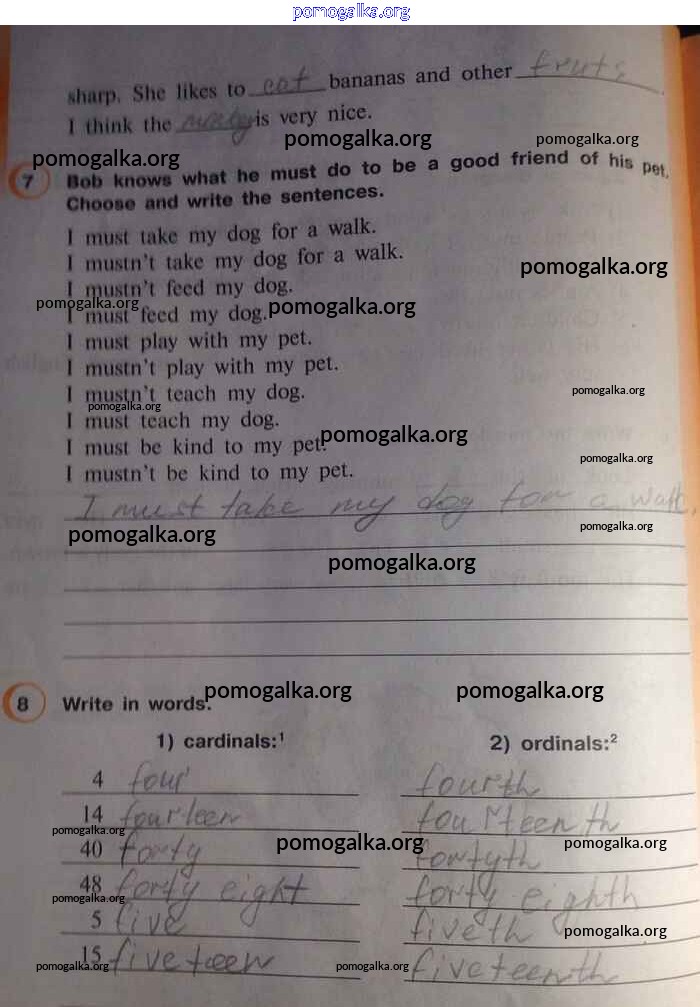 pomogalka.org
sharp. She likes to eat bananas and other fruts
I think the is very nice.
pomogalka.org pomogalka.org
pomogalka.org
7 Bob knows what he must do to be a good friend of his pet.
Choose and write the sentences.
I must take my dog for a walk.
I mustn't take my dog for a walk.
pomogalka.org
I mustn't feed my dog.
pomogalka.org pomogalka.org
I must feed my dog.
I must play with my pet.
I mustn't play with my pet.
I mustn't teach my dog.
pomogalka.org
pomogalka.org
I must teach my dog.
I must be kind to my pet.
pomogalka.org
pomogalka.org
I mustn't be kind to my pet.
I must take my dog for a walk.
pomogalka.org pomogalka.org
pomogalka.org
8 Write in words.
pomogalka.org pomogalka.org
1) cardinals:¹ 2) ordinals:²
4 four fourth
14 fourteen fourteenth
pomogalka.org pomogalka.org pomogalka.org
40 forty fortyth
48 forty eight forty eighth
pomogalka.org
5 five fiveth
pomogalka.org
15 fiveteen fiveteenth
pomogalka.org pomogalka.org